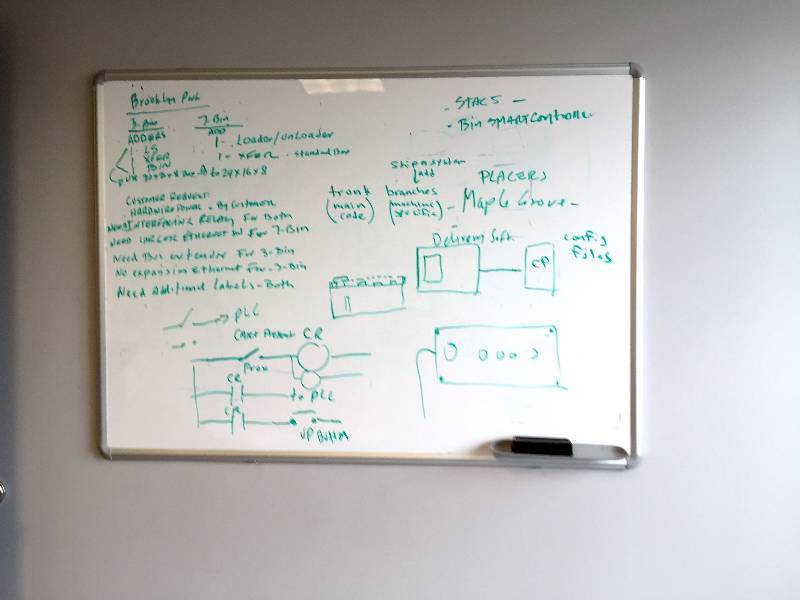 Brooklyn Park
3-Bin 7-Bin
ADDERS ADD
1 LS 1- Loader/unLoader
1 XFER 1- XFER - Standard
1 BIN
to 24x16x8
CUSTOMER REQUEST:
HARDWIRE POWER - By Customer
NEED INTERFACING RELAY For Both
NEED LARGER ETHERNET SW For 7-Bin
Need Bus extender For 3-Bin
No expansion Ethernet For -Bin
Need Additional Labels - Both
- STACS -
- Bin SMART Controller
ship a system
add
trunk branches
(main code) (machine specific)
PLACERS
- Maple Grove -
Delivery Soft.
CP
config files
PLC
CART Present CR
Prox
CR
to PLC
CR
UP Button